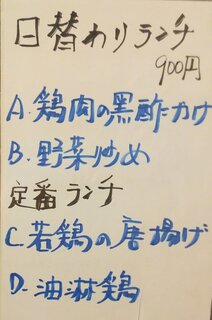 日替わりランチ
900円
A.鶏肉の黒酢かけ
B.野菜炒め
定番ランチ
C.若鶏の唐揚げ
D.油淋鶏